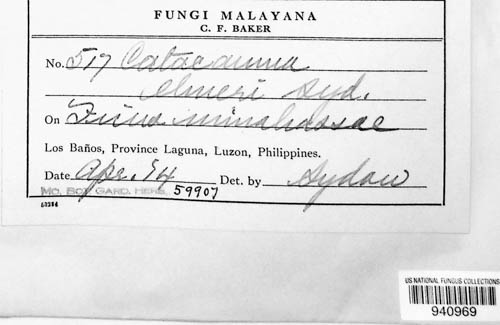 FUNGI MALAYANA
C. F. BAKER
No. 517 Catacauma
Elmeri Syd.
On Ficus minahassae
Los Baños, Province Laguna, Luzon, Philippines.
Date Apr. 14 Det. by Sydow
MO. BOT. GARD. HERB. 59907
US NATIONAL FUNGUS COLLECTIONS
940969